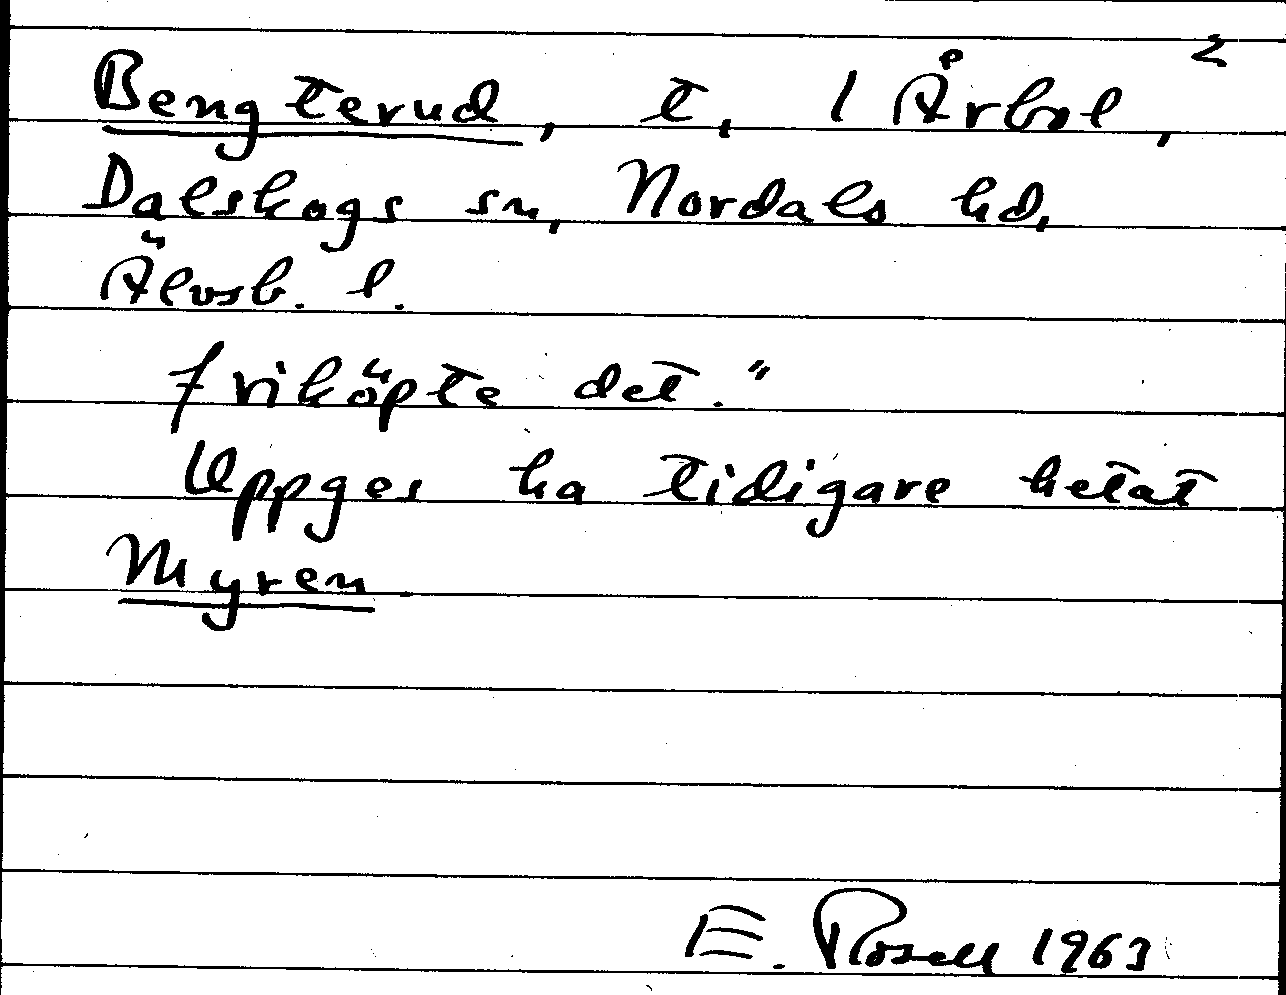 2
Bengterud, t, 1 Årbol,
Dalskogs sn, Nordals hd,
Älvsb. l.
friköpte det."
Uppges ha tidigare hetat
Myren.
E. Rosell 1963